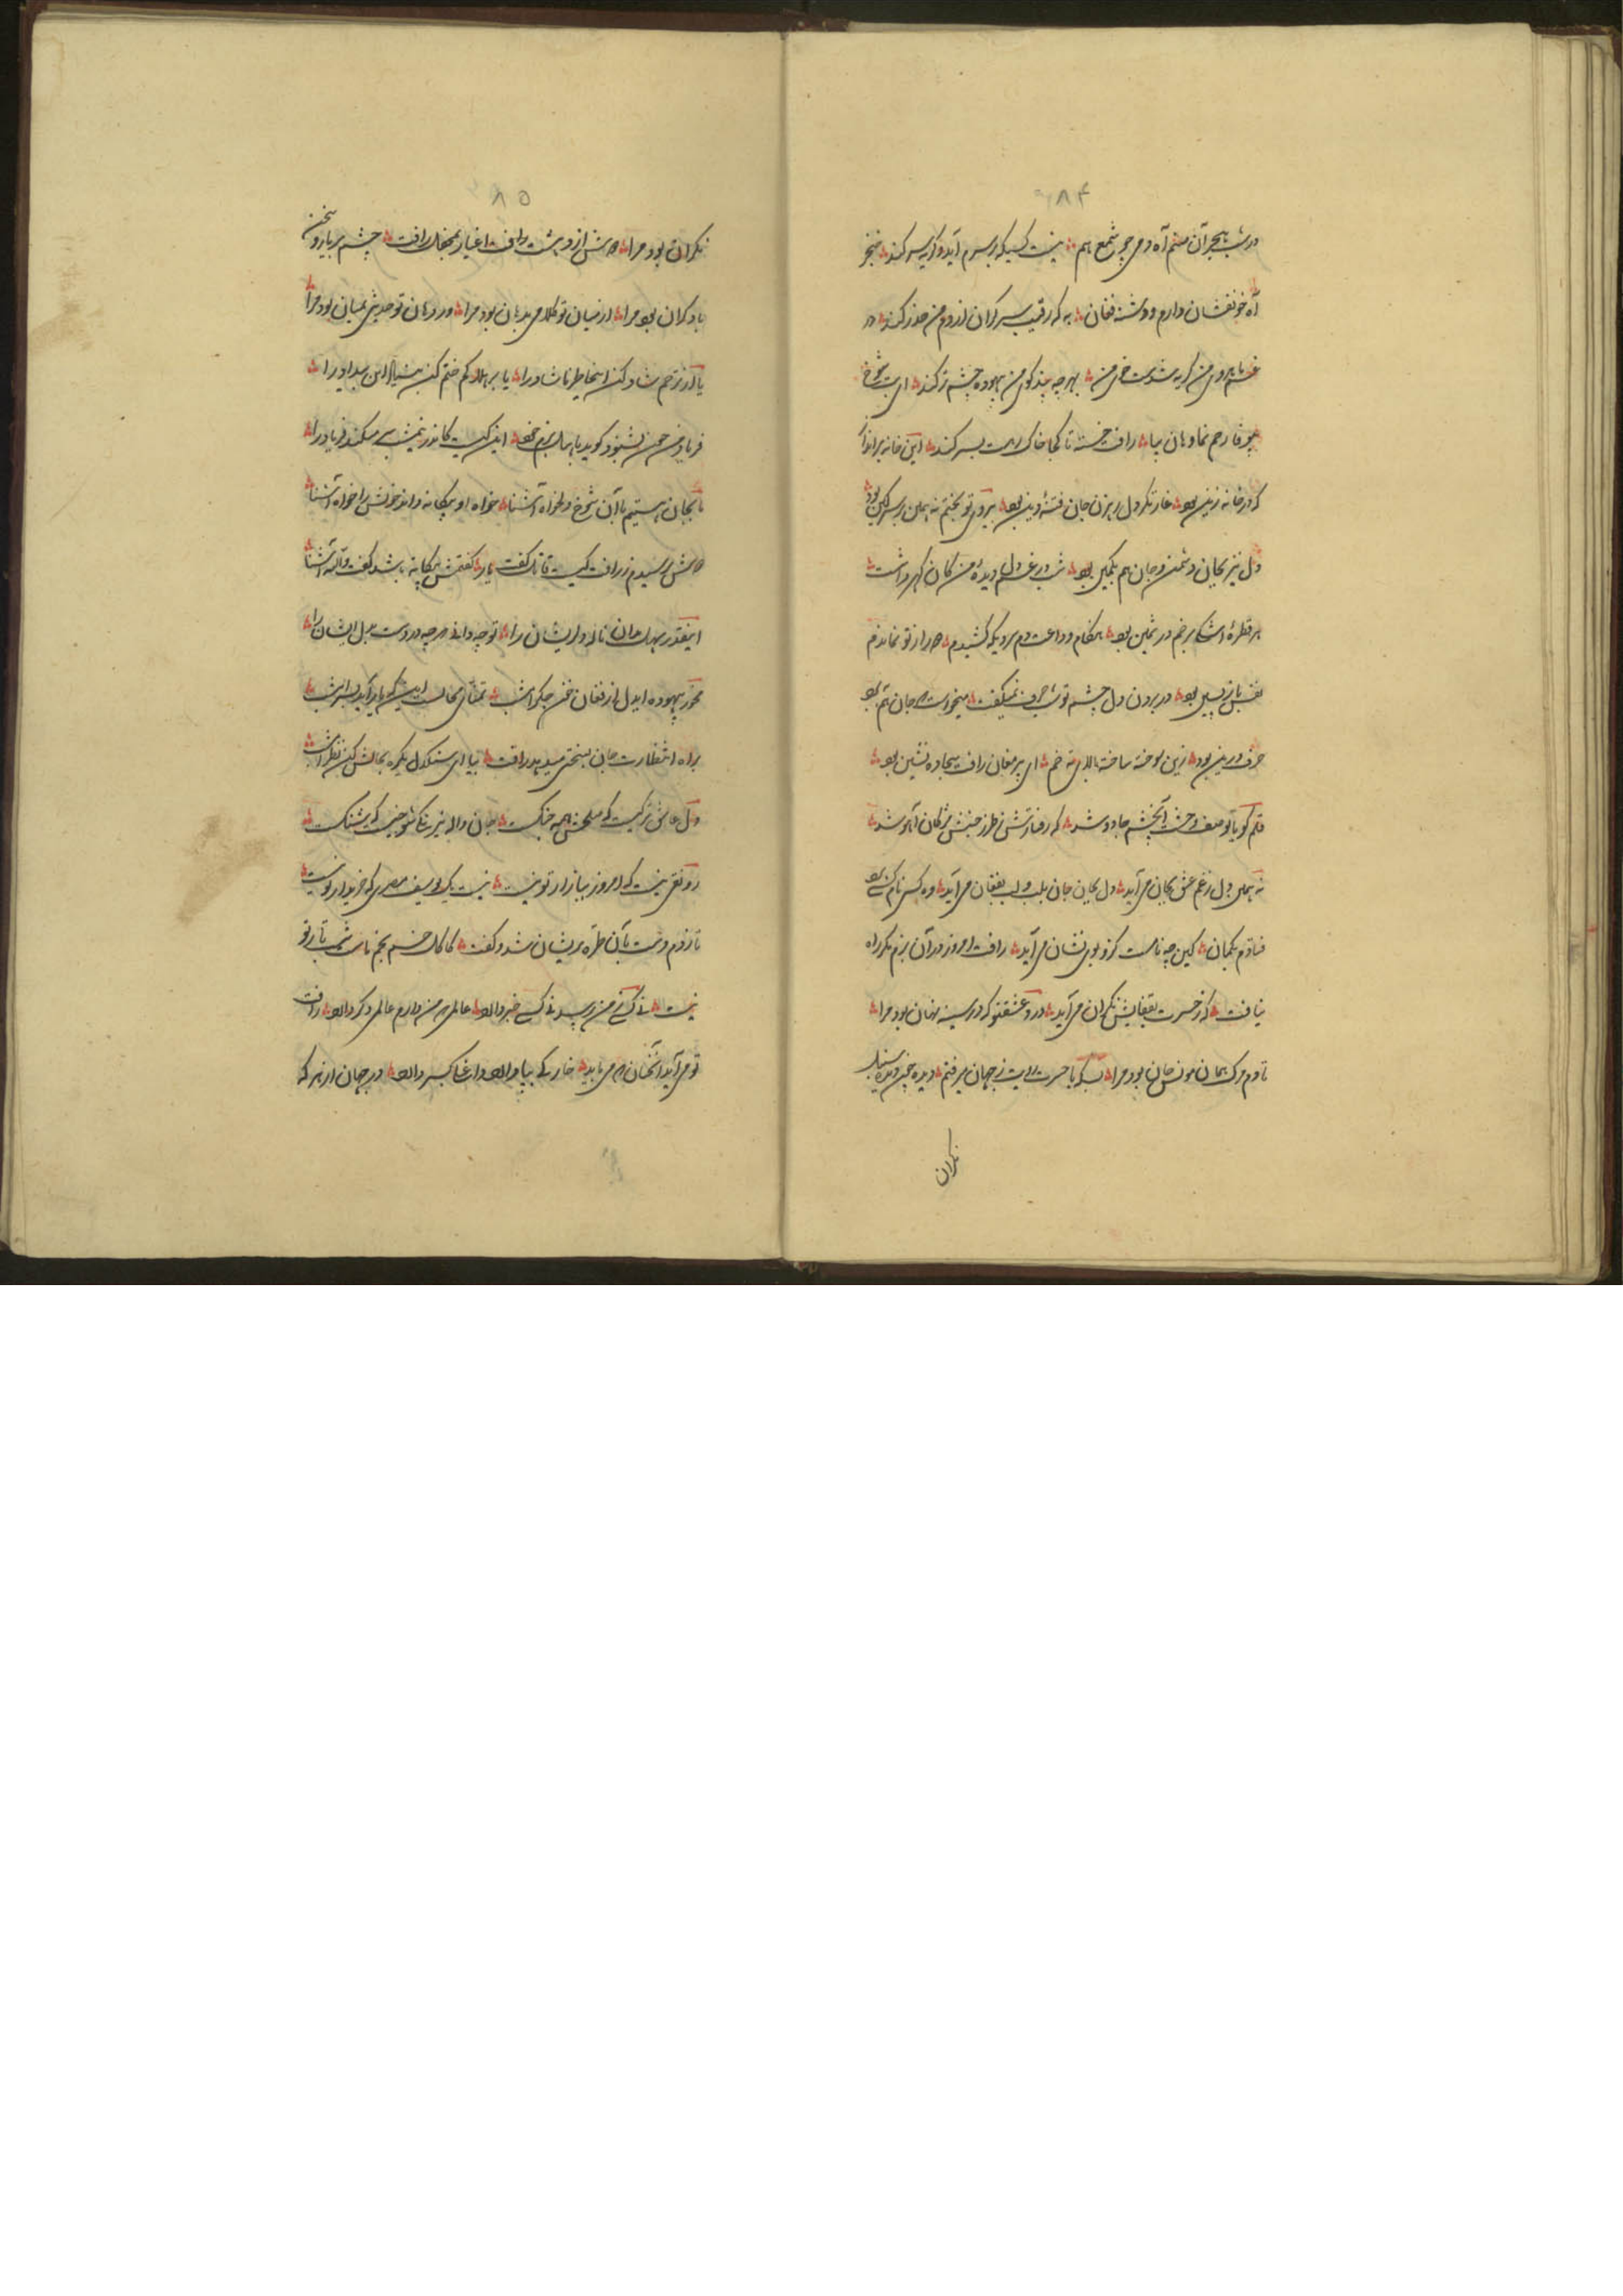 ۸۴
در شب هجر آن صنم آه دمی چو شمع هم نیست کسیکه بر سرم آید و گریه سر کند خنجر
آه خونفشان دارم و دشنه فغان به که رقیب سر گران از دم من حذر کند در
غم بیروی من گریه شدست خوی من بهر چه پند گوی من بیهوده چشم تر کند ای بت شوخ
بیوفا رحم نما و هان بیا رافت خسته تا کجا خاک رهت بسر کند این خانه برانداز
که در خانه زین بود غارتگر دل رهزن جان فتنهٔ دین بود بیروی تو بختم نه همان بر سر کین بود
دل نیز بجان دشمن و جان هم بکمین بود شب در غم دل دیدهٔ من کان گهر داشت
هر قطرهٔ اشکم برخم در ثمین بود هنگام وداعت دم سردیکه کشیدم از تو نماندم
نفس بازپسین بود در بردن دل چشم تو حرف نمیگفت میخواست جان هم
حرف درین بود زین سوخته ساخته بالای ته خم ای پیر مغان رافت سجاده نشین بود
قلم گویا تو وصف آنچشم جادو شد که رفتارش طرز جنبش مژگان آهو شد
نه همین دل ز غم عشق بجان می آید دل بجان جان بلب و لب بفغان می آید
فتادم بگمان کین چه نامست کزو بوی نشان می آید رافت امروز در آن بزم مگر راه
نیافت کز حسرت بقفایش نگران می آید درد عشقتو که در سینه نهان بود مرا
تا دم مرگ همان مونس جان بود مرا بسکه با حسرت رویت ز جهان میرفتم دیده
نگران
۸۵
نگران بود مرا دوش از دهشت رافت اغیار بمحفل رافت چشم بر یار و سخن
با دگران بود مرا از میان تو کلامی بدهان بود مرا در دهان تو حدیثی بمیان بود مرا
یا از ترحم شاد کن اینخاطر ناشاد را یا بر هلاکم ختم کن این بیداد را
فریاد من چون بشنود گوید باین کیست کاندر نیمشب سر میکند فریاد را
تا بجان هستیم با آن شوخ دلخواه آشنا خواه او بیگانه داند خویش را خواه آشنا
دوش پرسیدم ز رافت کیست قاتل گفت یار گفتمش بیگانه باشد گفت والله آشنا
اینقدر سهل مدان نالهٔ دل ریشان را تو چه دانی که چه دردست بدل ایشان را
مخور بیهوده ایدل از فغان خون جگر امشب تمنای محالست اینکه یار آید بسر امشب
براه انتظارت جان بسختی میدهد رافت بیا ای سنگدل یکره بحالش کن نظر امشب
دل عاشق ترکیست که صلحش همه جنگ است جان واله
رونقی نیست که امروز ببازار تو نیست نیست یک یوسف مصری که خریدار تو نیست
تا زدم دست بآن طره پریشان شد و گفت کاکل خم بخم ماست شب تار تو
نیست نی کسی من رسید نی کسی خبر دارد عالمی که من دارم عالمی دگر دارد رافت
تو می آید آنچنان که می باید خار کی بپا دارد داغها بسر دارد در جهان از هر که